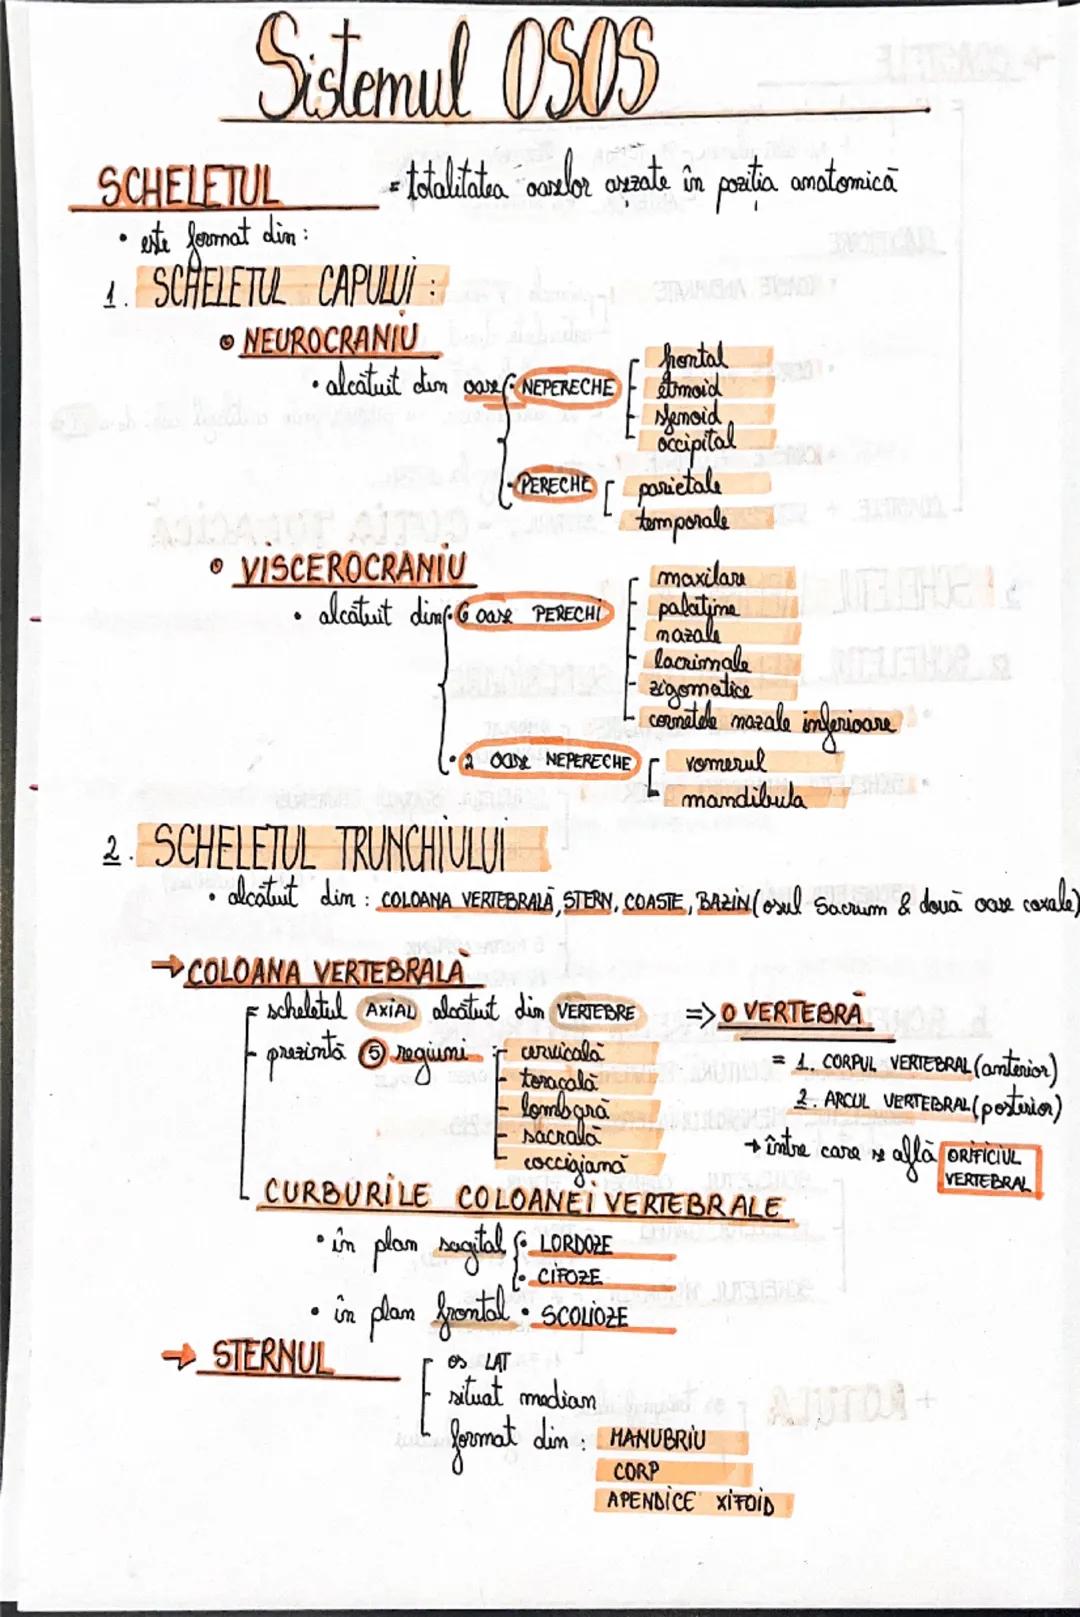 Sistemul OSOS
SCHELETUL = totalitatea oaselor așezate în poziția anatomică
• este format din :
1. SCHELETUL CAPULUI :
• NEUROCRANIU
• alcătuit din oase • NEPERECHE
- frontal
- etmoid
- sfenoid
- occipital
• PERECHE
- parietale
- temporale
• VISCEROCRANIU
• alcătuit din • 6 oase PERECHI
- maxilare
- palatine
- nazale
- lacrimale
- zigomatice
- cornetele nazale inferioare
• 2 oase NEPERECHE
- vomerul
- mandibula
2. SCHELETUL TRUNCHIULUI
• alcătuit din : COLOANA VERTEBRALĂ, STERN, COASTE, BAZIN (osul Sacrum & două oase coxale)
→ COLOANA VERTEBRALĂ
- scheletul AXIAL alcătuit din VERTEBRE => O VERTEBRĂ
- prezintă 5 regiuni
- cervicală
- toracală
- lombară
- sacrală
- coccigiană
= 1. CORPUL VERTEBRAL (anterior)
2. ARCUL VERTEBRAL (posterior)
→ între care se află ORIFICIUL VERTEBRAL
CURBURILE COLOANEI VERTEBRALE
• în plan sagital • LORDOZE
• CIFOZE
• în plan frontal • SCOLIOZE
→ STERNUL
- os LAT
- situat median
- format din : MANUBRIU
CORP
APENDICE XIFOID